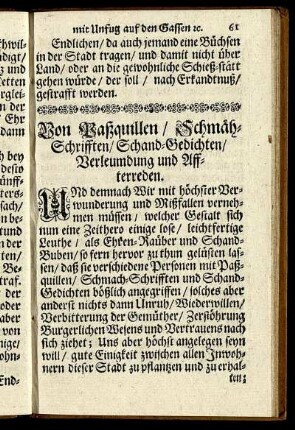 mit Unfug auf den Gassen ꝛc. 61
Endlichen/ da auch jemand eine Büchsen
in der Stadt tragen/ und damit nicht über
Land/ oder an die gewöhnliche Schieß-statt
gehen würde/ der soll/ nach Erkandtnuß/
gestrafft werden.
Von Paßquillen/ Schmäh-
Schrifften/ Schand-Gedichten/
Verleumdung und Aff-
terreden.
UNd demnach Wir mit höchster Ver-
wunderung und Mißfallen verneh-
men müssen/ welcher Gestalt sich
nun eine Zeithero einige lose/ leichtfertige
Leuthe/ als Ehren-Räuber und Schand-
Buben/ so fern hervor zu thun gelüsten las-
sen/ daß sie verschiedene Personen mit Paß-
quillen/ Schmach-Schrifften und Schand-
Gedichten bößlich angreiffen/ solches aber
anderst nichts dann Unruh/ Wiederwillen/
Verbitterung der Gemüther/ Zerstöhrung
Burgerlichen Wesens und Vertrauens nach
sich ziehet; Uns aber höchst angelegen seyn
will/ gute Einigkeit zwischen allen Inwoh-
nern dieser Stadt zu pflantzen und zu erhal-
ten;